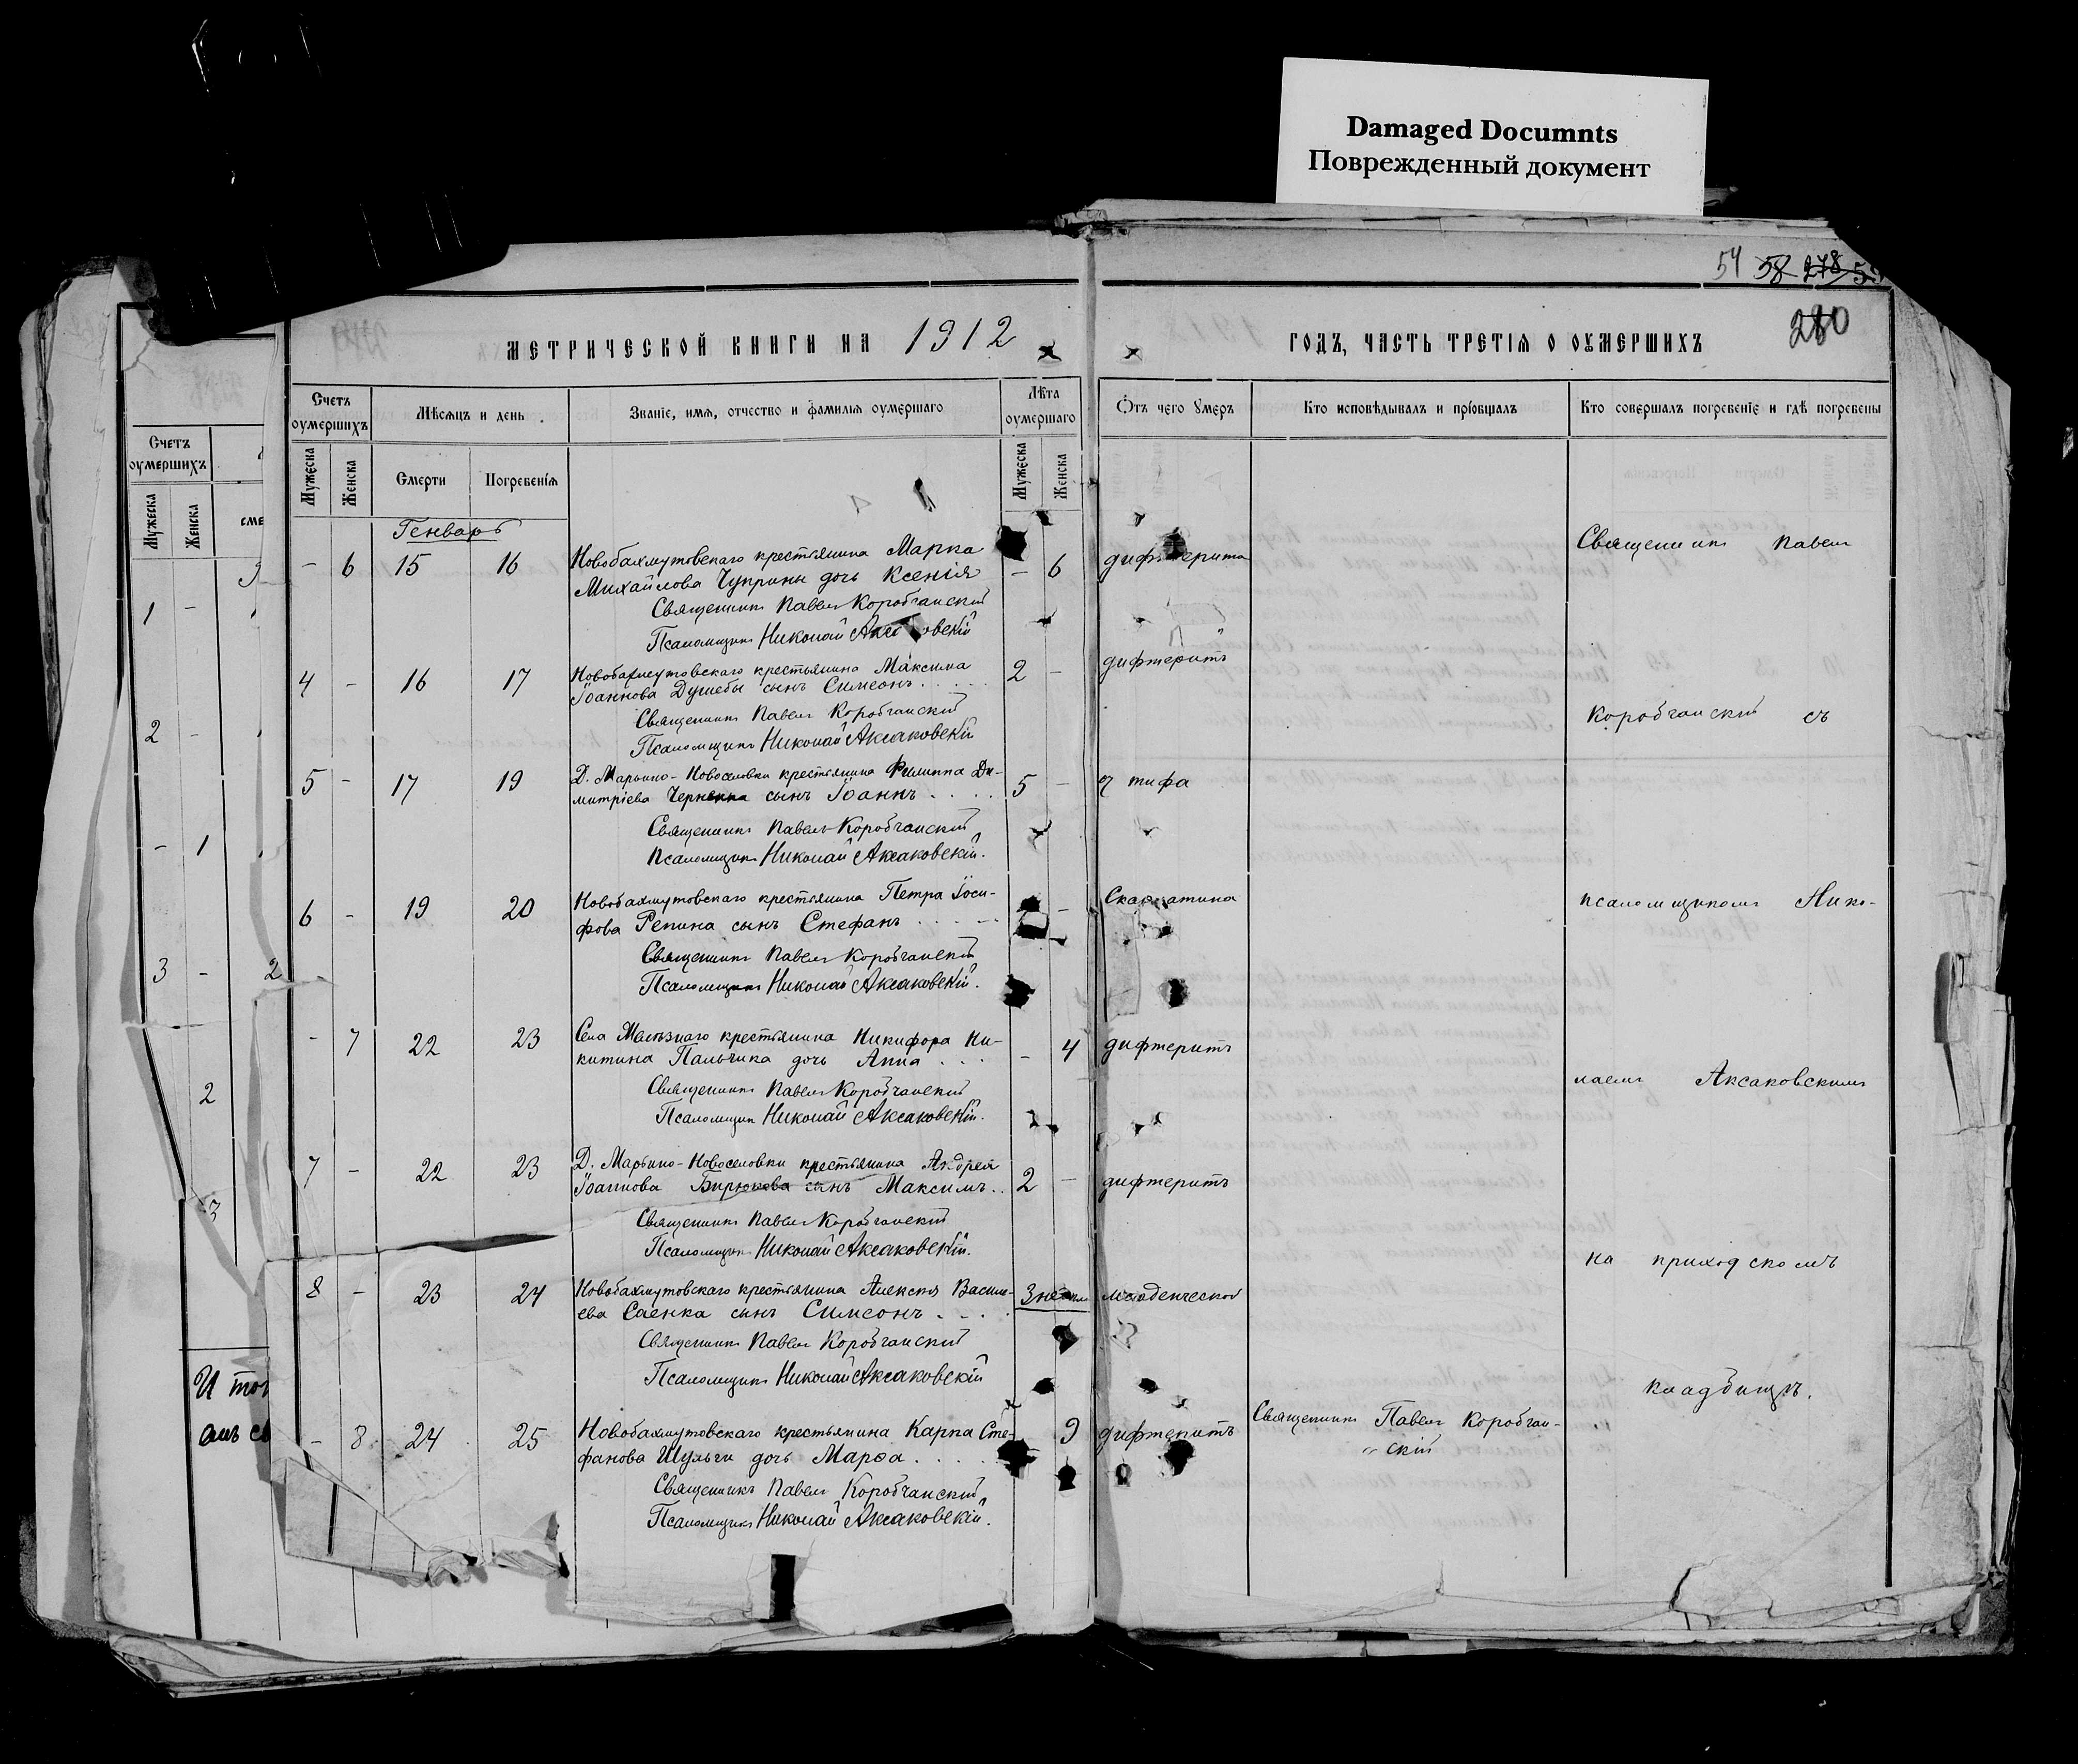 Damaged Documnts
Поврежденный документ
54 58 278 59
280
МЕТРИЧЕСКОЙ КНИГИ НА 1912
ГОДЪ, ЧАСТЬ ТРЕТІЯ О ОУМЕРШИХЪ
Счетъ оумершихъ
Мѣсяцъ и день
Званіе, имя, отчество и фамилія оумершаго
Лѣта оумершаго
Отъ чего умеръ
Кто исповѣдывалъ и пріобщалъ
Кто совершалъ погребеніе и гдѣ погребены
Мужеска
Женска
Смерти
Погребенія
Мужеска
Женска
Генварь
- 6 15 16 Новобахмутовскаго крестьянина Марка - 6 дифтерита
Михайлова Чуприны дочь Ксенія
Священникъ Павелъ Коробчанскій
Псаломщикъ Николай Аксаковскій
4 - 16 17 Новобахмутовскаго крестьянина Максима 2 - дифтеритъ
Іоаннова Душебы сынъ Симеонъ . . . .
Священникъ Павелъ Коробчанскій
Псаломщикъ Николай Аксаковскій
5 - 17 19 Д. Марьино-Новоселовки крестьянина Филиппа Ди- 5 - тифа
митріева Черненка сынъ Іоаннъ . . . .
Священникъ Павелъ Коробчанскій
Псаломщикъ Николай Аксаковскій.
6 - 19 20 Новобахмутовскаго крестьянина Петра Іоси- - Скарлатина
фова Репина сынъ Стефанъ . . . . .
Священникъ Павелъ Коробчанскій
Псаломщикъ Николай Аксаковскій.
- 7 22 23 Села Желѣзнаго крестьянина Никифора Ни- - 4 дифтеритъ
китина Пальчика дочь Анна . . .
Священникъ Павелъ Коробчанскій
Псаломщикъ Николай Аксаковскій.
7 - 22 23 Д. Марьино-Новоселовки крестьянина Андрея 2 - дифтеритъ
Іоаннова Бирюкова сынъ Максимъ..
Священникъ Павелъ Коробчанскій
Псаломщикъ Николай Аксаковскій.
8 - 23 24 Новобахмутовскаго крестьянина Алексѣя Василь- младенческой
ева Саенка сынъ Симеонъ . . .
Священникъ Павелъ Коробчанскій
Псаломщикъ Николай Аксаковскій
- 8 24 25 Новобахмутовскаго крестьянина Карпа Сте- 9 дифтеритъ
фанова Шульги дочь Марѳа . . . . .
Священникъ Павелъ Коробчанскій
Псаломщикъ Николай Аксаковскій.
Священникъ Павелъ Коробчан-
скій
Священникъ Павелъ
Коробчанскій съ
псаломщикомъ Нико-
лаемъ Аксаковскимъ
на приходскомъ
кладбищѣ.
Счетъ оумершихъ
Мужеска
Женска
сме
1 -
2 -
- 1
3 - 2
2
3
И тог